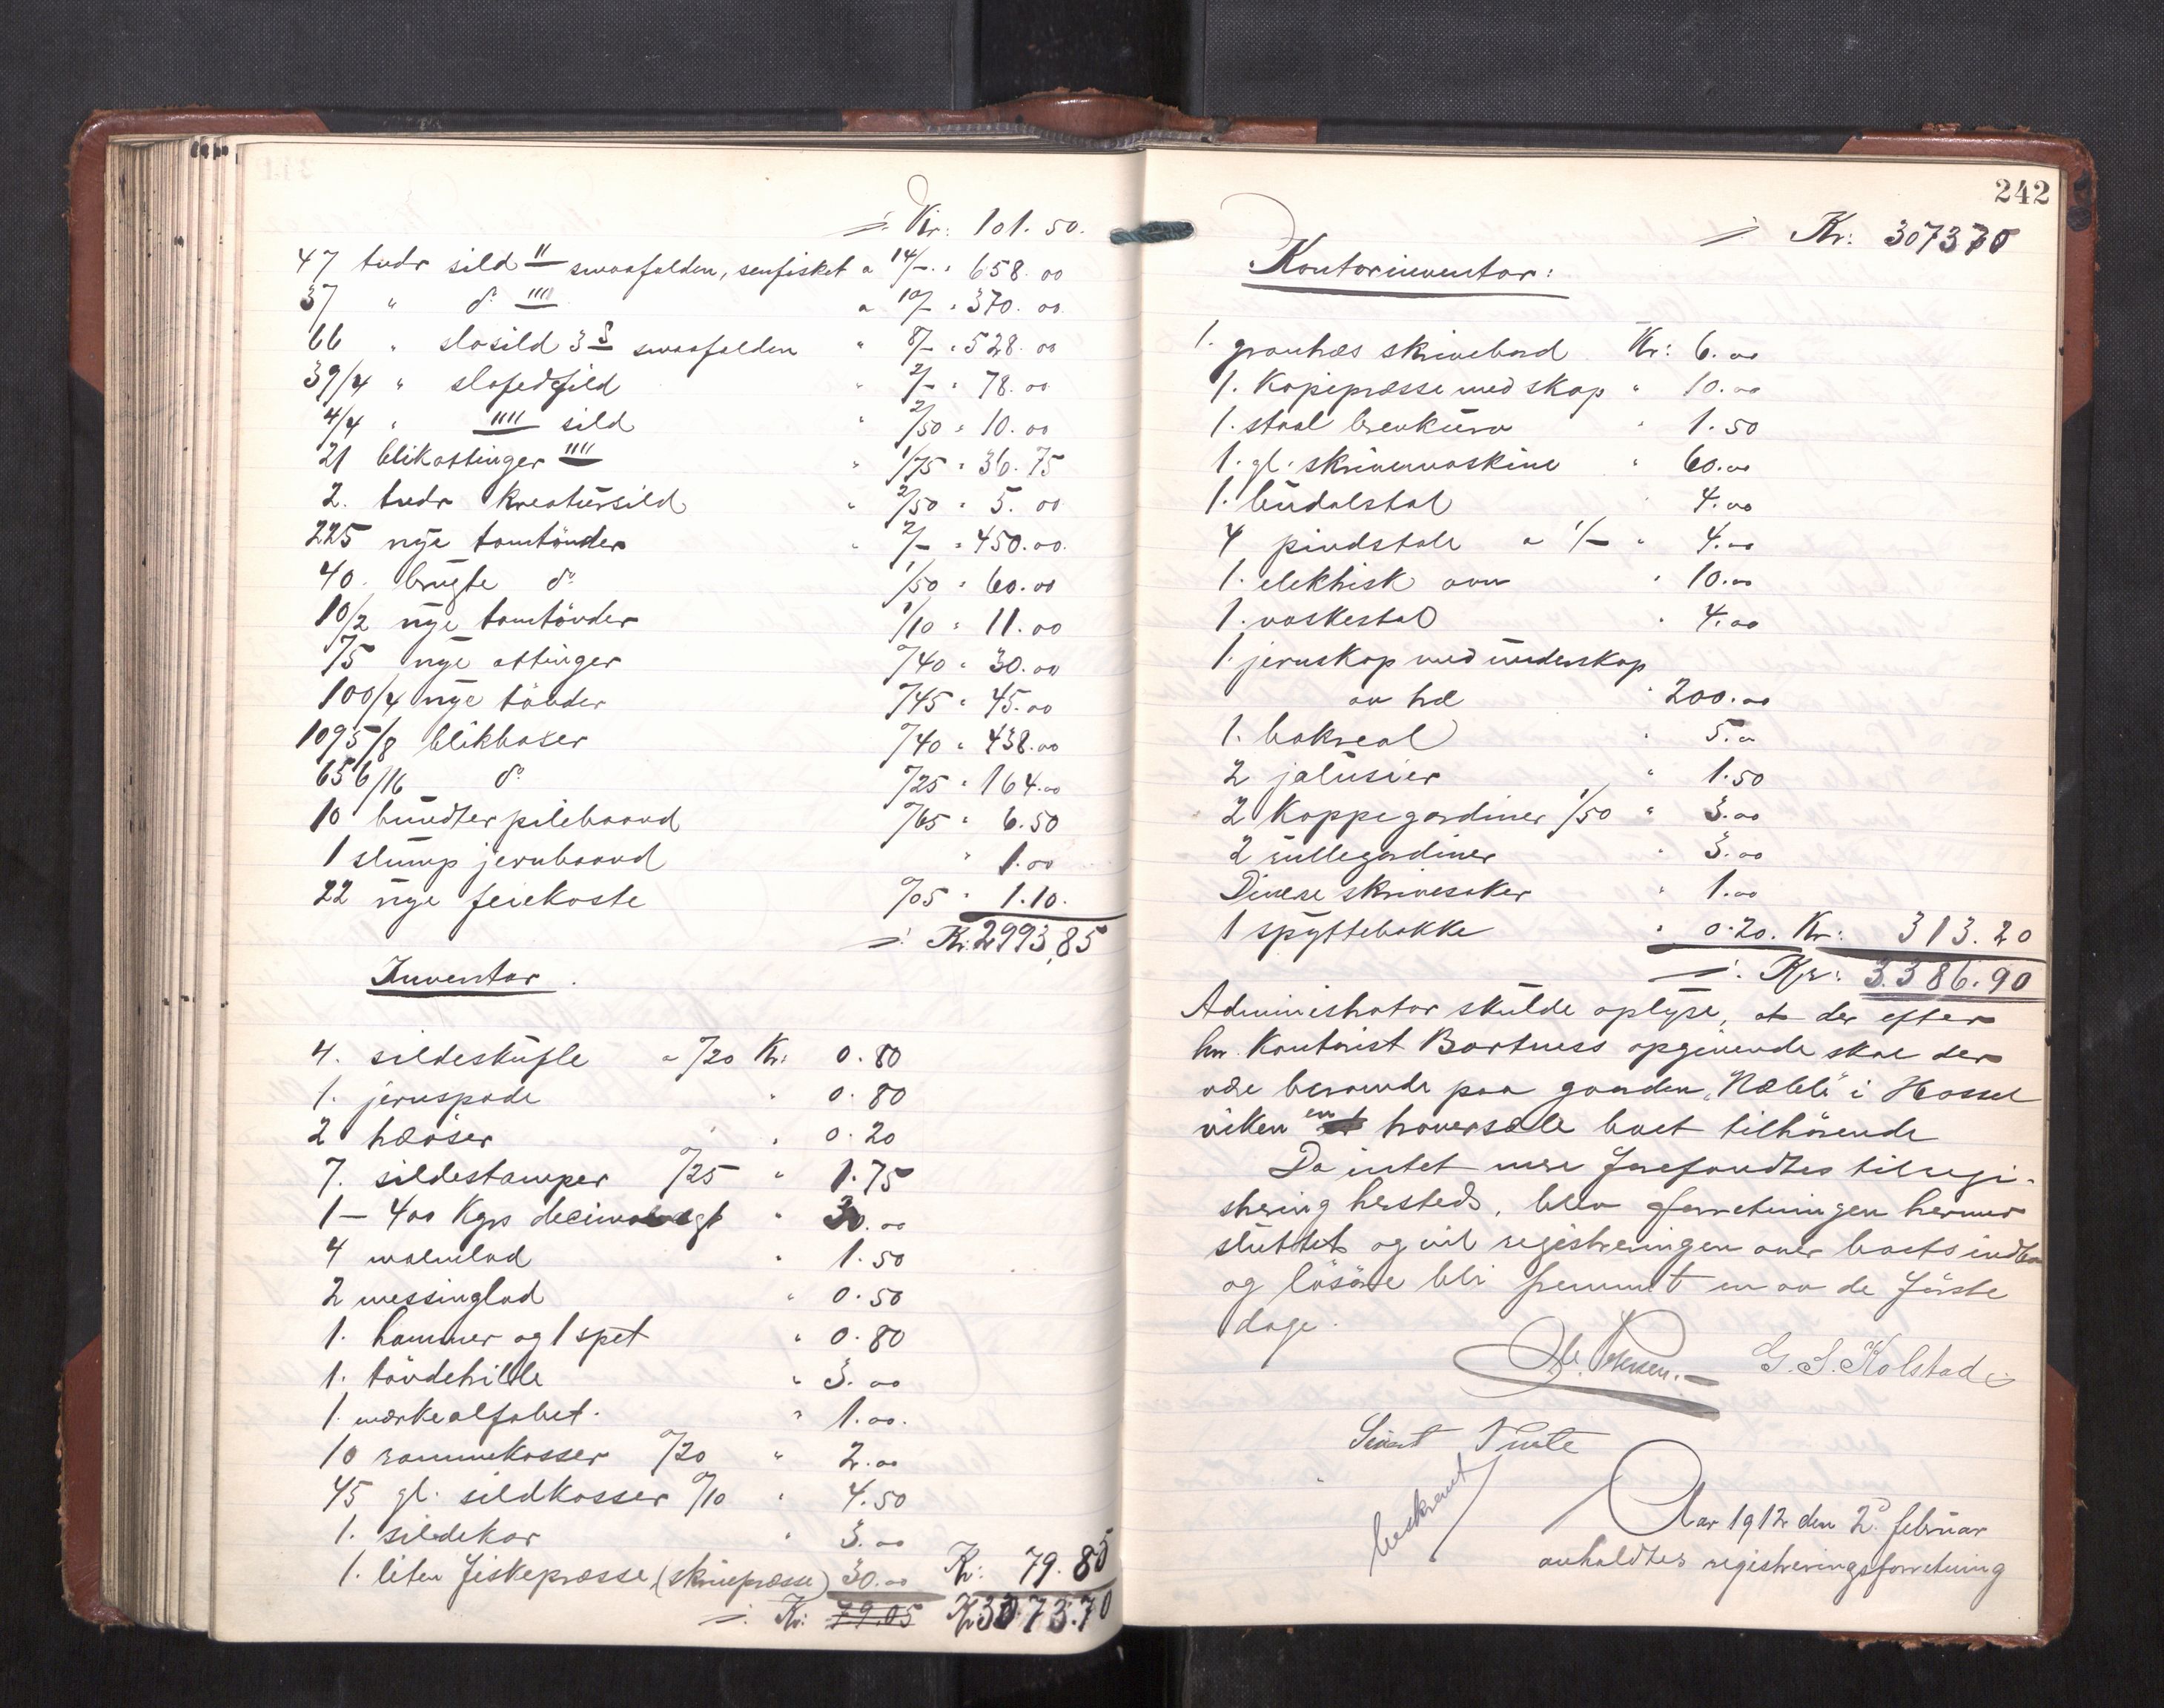 ⁒ Kr: 101.50.
47 tndr sild II smaafalden, senfisket a 14/- " 658.00
37 " do IIII a 10/- " 370.00
66 " slosild 3 S smaafalden " 8/- " 528.00
39/4 " slosild " 2/- " 78.00
4/4 " IIII sild " 2/50 " 10.00
21 blikattinger IIII " 1/75 " 36.75
2. tndr kreatursild " 2/50 " 5.00
225 nye tomtönder " 2/- " 450.00
40. brugte do 1/50 " 60.00
10/2 nye tomtönder 1/10 " 11.00
75 nye attinger 0/40 " 30.00
100/4 nye tönder 0/45 " 45.00
1095/8 blikbaser 0/40 " 438.00
656/16 do 0/25 " 164.00
10 bundter pilebaand 0/65 " 6.50
1 slump jernbaand " 1.00
22 nye feiekoste 0/05 " 1.10.
⁒ Kr. 2993,85
Inventar.
4. sildeskufle a 0/20 Kr: 0.80
1. jernspade " 0.80
2 træöser " 0.20
7. sildestamper 0/25 " 1.75
1 – 400 Kgrs decimalvegt " 30.00
4 malmlod " 1.50
2 messinglod " 0.50
1. hammer og 1 spet " 0.80
1. töndetrille " 3.00
1. mærkealfabet. " 1.00.
10 rammekasser 0/20 " 2.00
45 gl. sildkasser 0/10 " 4.50
1. sildekar " 3.00
1. liten fiskepresse (skruepresse) 30.00 Kr: 79.85
⁒ Kr: 79.05 Kr 3073.70
242
⁒ Kr: 307370
Kontorinventar:
1. grantræs skrivebord Kr: 6.00
1. Kopipresse med skap " 10.00
1. staal brevkurv " 1.50
1. gl. skrivemaskine " 60.00
1. bendalstol " 4.00
4 pindstole a 1/- " 4.00
1. elektrisk ovn " 10.00
1. vaskestol " 4.00
1. jernskap med underskap
av træ " 200.00
1. bokreol " 5.00
2 jalusier " 1.50
2 Kappegardiner 1/50 " 3.00
2 rullegardiner " 3.00
Diverse skrivesaker " 1.00
1 spyttebakke " 0.20. Kr: 313.20
⁒ Kr: 3.386.90
Administrator skulde oplyse, at der efter
hr. Kontorist Bortness opgivende skal der
være beroende paa gaarden "Næbb" i Hassel
viken en traversale boet tilhörende
Da intet mere forefandtes til regi-
strering hersteds, blev forretningen hermed
sluttet og vil registreringen over boets indbo
og lösöre bli fremmet en av de förste
dage.
G. S. Kolstad
Sivert
beskrevet
Aar 1912 den 2. februar
avholdtes registreringsforretning